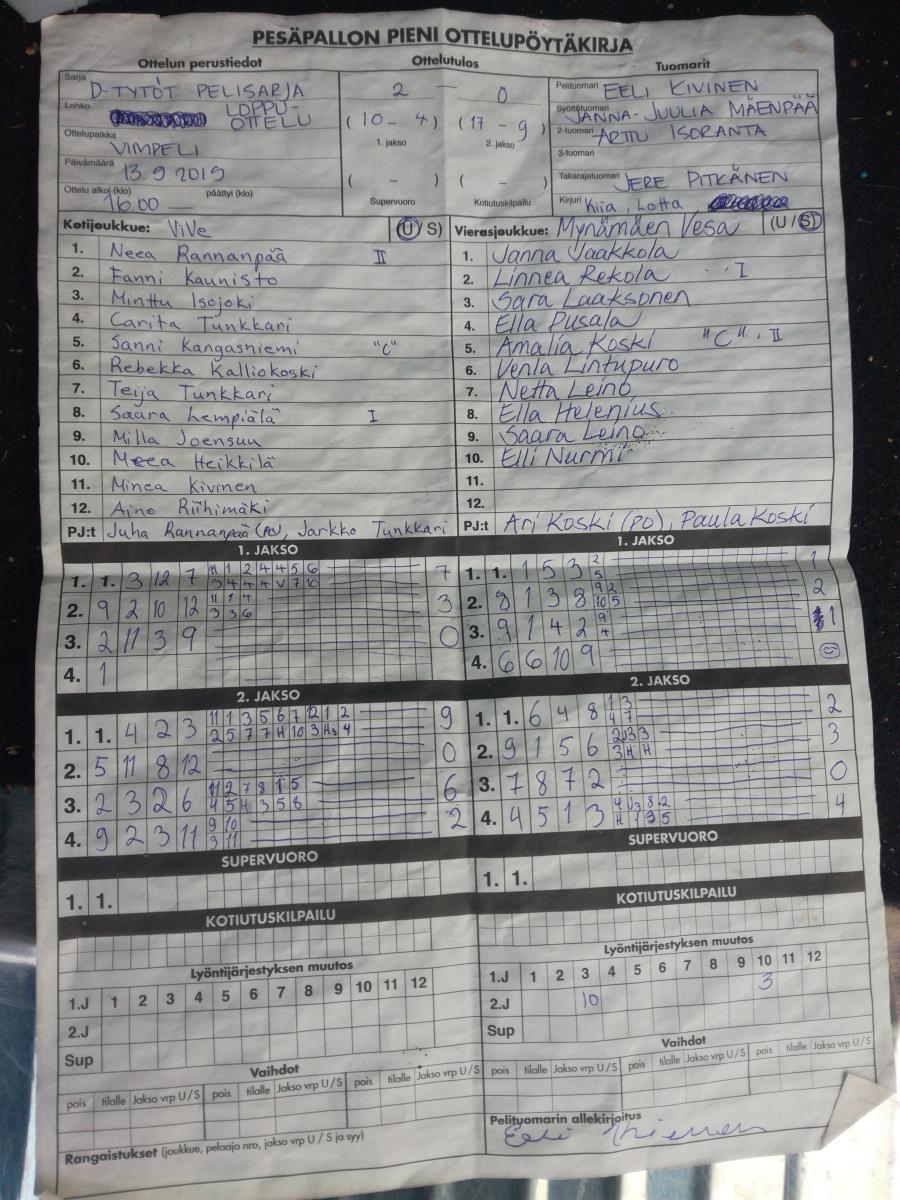 PESÄPALLON PIENI OTTELUPÖYTÄKIRJA
Ottelun perustiedot
Sarja D-TYTÖT PELISARJA
Lohko LOPPU-
OTTELU
Ottelupaikka VIMPELI
Päivämäärä 13.9.2019
Ottelu alkoi (klo) päättyi (klo)
16.00
Ottelutulos
2 – 0
(10 – 4) (17 – 9)
1. jakso 2. jakso
( – ) ( – )
Supervuoro Kotiutuskilpailu
Tuomarit
Pelituomari EELI KIVINEN
Syöttötuomari JANNA-JUULIA MÄENPÄÄ
2-tuomari ARTTU ISORANTA
3-tuomari
Takarajatuomari JERE PITKÄNEN
Kirjuri Kiia, Lotta
Kotijoukkue: ViVe (U/S)
1. Neea Rannanpää II
2. Fanni Kaunisto
3. Minttu Isojoki
4. Carita Tunkkari
5. Sanni Kangasniemi "C"
6. Rebekka Kalliokoski
7. Teija Tunkkari
8. Saara Lempiälä I
9. Milla Joensuu
10. Meea Heikkilä
11. Minea Kivinen
12. Aino Riihimäki
PJ:t Juha Rannanpää (PO), Jarkko Tunkkari
Vierasjoukkue: Mynämäen Vesa (U/S)
1. Janna Jaakkola
2. Linnea Rekola I
3. Sara Laaksonen
4. Ella Pusala
5. Amalia Koski "C" II
6. Venla Lintupuro
7. Netta Leino
8. Ella Helenius
9. Saara Leino
10. Elli Nurmi
11.
12.
PJ:t Ari Koski (PO), Paula Koski
1. JAKSO
1. 1. 3 12 7 11 1 2 4 4 5 6 7
3 4 4 4 V 7 10
2. 9 2 10 12 11 1 4 3
3 3 6
3. 2 11 3 9 0
4. 1
1. JAKSO
1. 1. 1 5 3 2 1
5
2. 8 1 3 8 9 2 2
10 5
3. 9 1 4 2 9 1
4
4. 6 6 10 9
2. JAKSO
1. 1. 4 2 3 11 1 3 5 6 7 12 1 2 9
2 5 7 7 H 10 3 H3 4
2. 5 11 8 12 0
3. 2 3 2 6 11 2 7 8 1 5 6
4 5 H 3 5 8
4. 9 2 3 11 9 10 2
3 11
2. JAKSO
1. 1. 6 4 8 1 3 2
4 7
2. 9 1 5 6 2 3 3 3
3 H H
3. 7 8 7 2 0
4. 4 5 1 3 8 2 4
SUPERVUORO
1. 1.
SUPERVUORO
1. 1.
KOTIUTUSKILPAILU
KOTIUTUSKILPAILU
Lyöntijärjestyksen muutos
1.J 1 2 3 4 5 6 7 8 9 10 11 12
2.J
Sup
Lyöntijärjestyksen muutos
1.J 1 2 3 4 5 6 7 8 9 10 11 12
2.J 10 3
Sup
Vaihdot
pois tilalle Jakso vrp U/S pois tilalle Jakso vrp U/S pois tilalle Jakso vrp U/S
Vaihdot
pois tilalle Jakso vrp U/S pois tilalle Jakso vrp U/S pois tilalle Jakso vrp U/S
Rangaistukset (joukkue, pelaaja nro, jakso vrp U / S ja syy)
Pelituomarin allekirjoitus
Eeli Kivinen